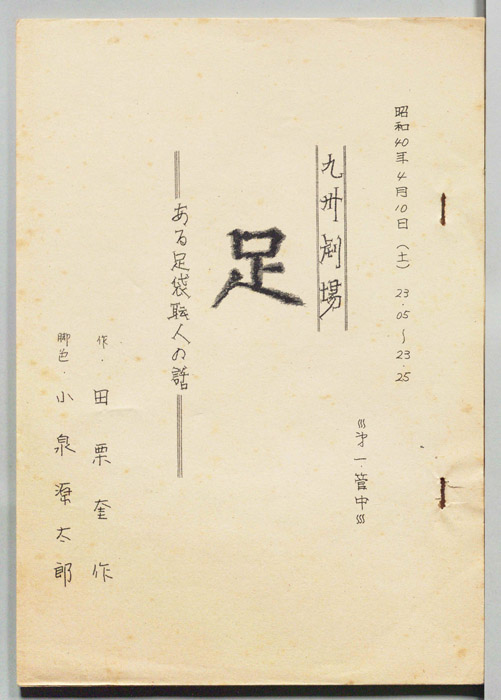 昭和40年4月10日（土） 23.05～23.25
九州劇場
第一・管中
足
ある足袋職人の話
作・田栗奎作
脚色・小泉源太郎